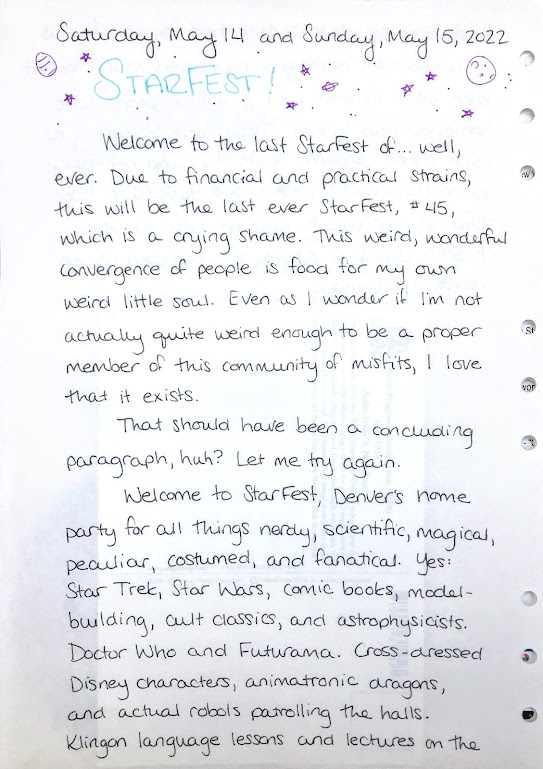 Saturday, May 14 and Sunday, May 15, 2022
STARFEST!
Welcome to the last StarFest of... well,
ever. Due to financial and practical strains,
this will be the last ever StarFest, #45,
which is a crying shame. This weird, wonderful
convergence of people is food for my own
weird little soul. Even as I wonder if I'm not
actually quite weird enough to be a proper
member of this community of misfits, I love
that it exists.
That should have been a concluding
paragraph, huh? Let me try again.
Welcome to StarFest, Denver's home
party for all things nerdy, scientific, magical,
peculiar, costumed, and fanatical. Yes:
Star Trek, Star Wars, comic books, model-
building, cult classics, and astrophysicists.
Doctor Who and Futurama. Cross-dressed
Disney characters, animatronic dragons,
and actual robots patrolling the halls.
Klingon language lessons and lectures on the